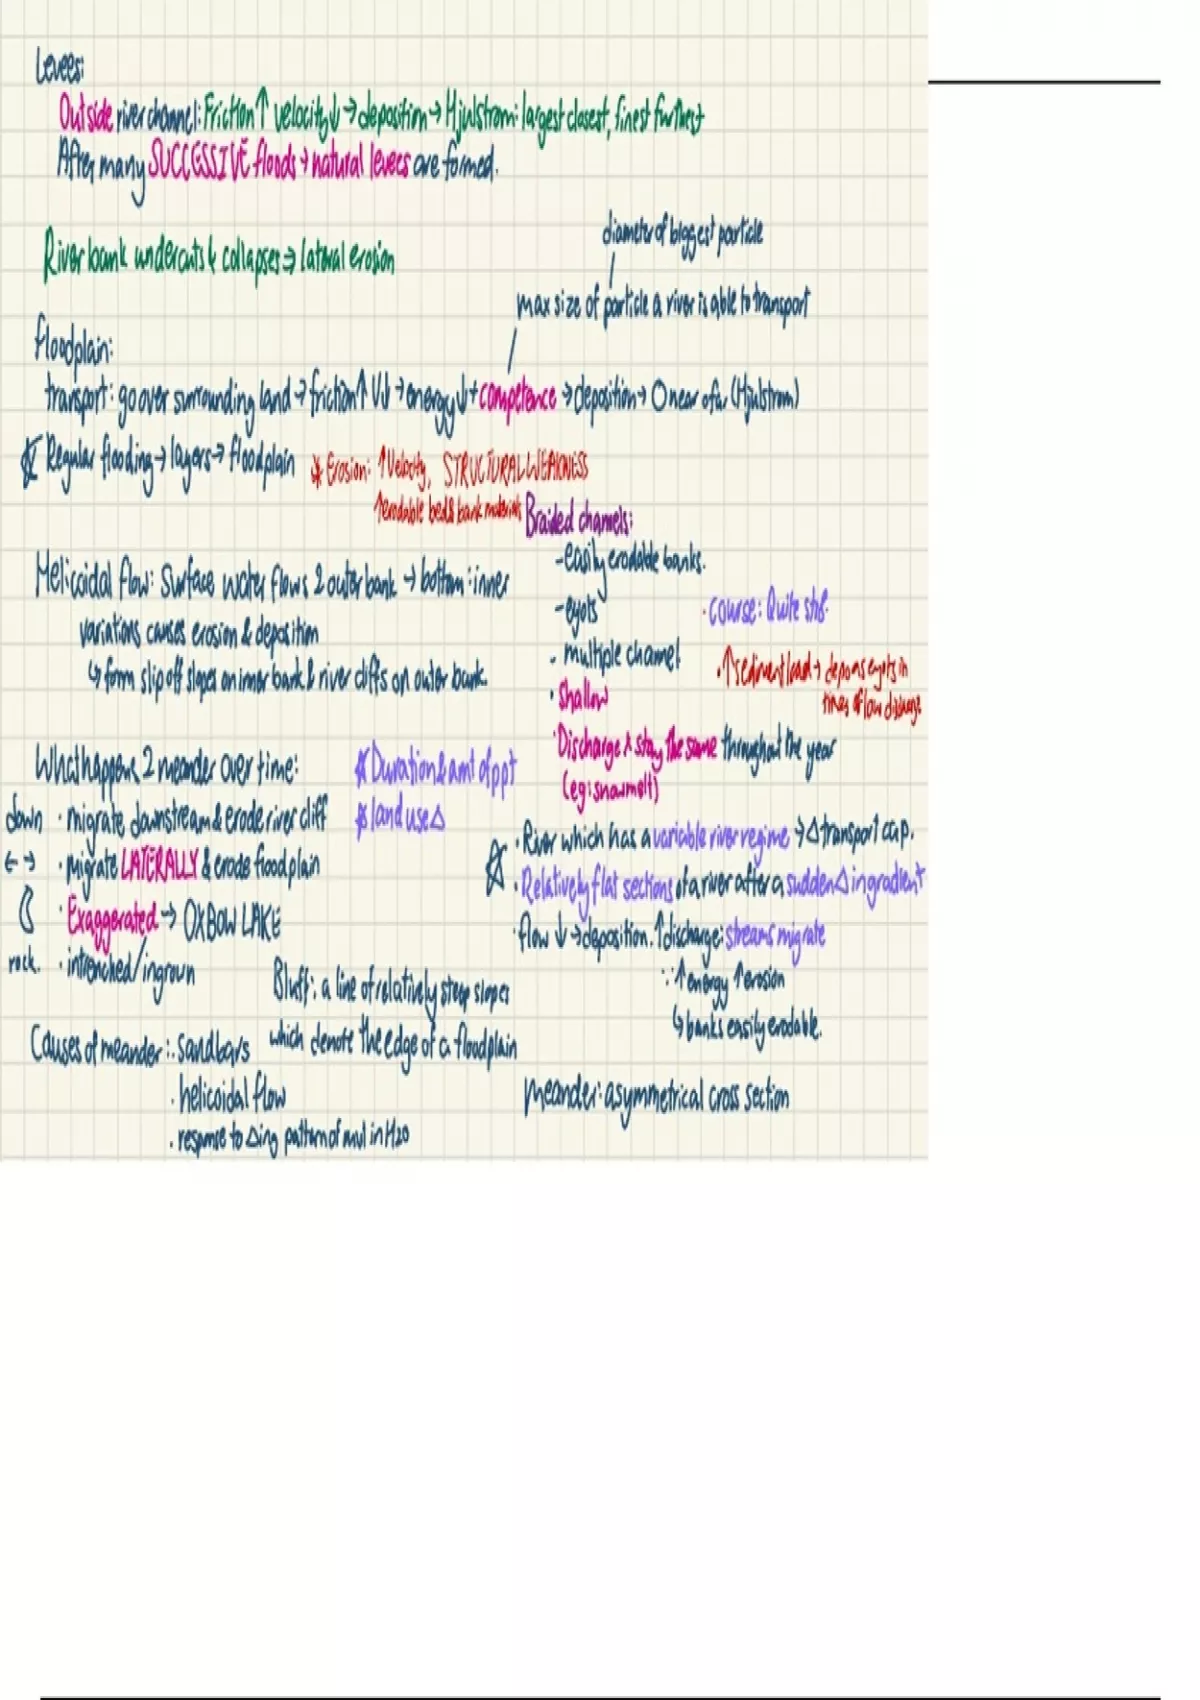 Levees:
Outside river channel: Friction↑ velocity↓ → deposition → Hjulstrom: largest closest, finest furthest
After many SUCCESSIVE floods → natural levees are formed.
diameter of biggest particle
River bank undercuts & collapses → lateral erosion
max size of particle a river is able to transport
Floodplain:
transport: go over surrounding land → friction↑ V↓ → energy↓ + competence → deposition → O near of ar (Hjulstrom)
Regular flooding → layers → floodplain
* Erosion: ↑Velocity, STRUCTURAL WEAKNESS
↑erodable bed & bank materials
Braided channels:
- easily erodable banks.
Helicoidal flow: Surface water flows 2 outer bank → bottom: inner
- eyots
· course: Quite str8·
variations causes erosion & deposition
· multiple channel
↳ form slip off slopes on inner bank & river cliffs on outer bank.
· ↑sediment load → eyots in
times of low discharge
· shallow
· Discharge stay the same throughout the year
(eg: snowmelt)
What happens 2 meander over time:
* Duration & amt of ppt
down · migrate downstream & erode river cliff
* land use Δ
· River which has a variable river regime → Δ transport cap.
← → · migrate LATERALLY & erode floodplain
· Relatively flat sections of a river after a sudden Δ in gradient
· Exaggerated → OXBOW LAKE
· flow ↓ → deposition. ↑discharge: streams migrate
rock. · intrenched/ingrown
∵ ↑energy ↑erosion
↳ banks easily erodable.
Bluff: a line of relatively steep slopes
which denote the edge of a floodplain
Causes of meander: · sandbars
· helicoidal flow
meander: asymmetrical cross section
· response to Δing pattern of in H2O